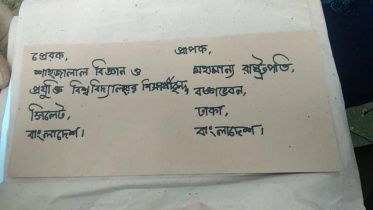 প্রেরক,
শাহজালাল বিজ্ঞান ও
প্রযুক্তি বিশ্ববিদ্যালয়ের শিক্ষার্থীবৃন্দ,
সিলেট,
বাংলাদেশ।
প্রাপক,
মহামান্য রাষ্ট্রপতি,
বঙ্গভবন,
ঢাকা,
বাংলাদেশ।